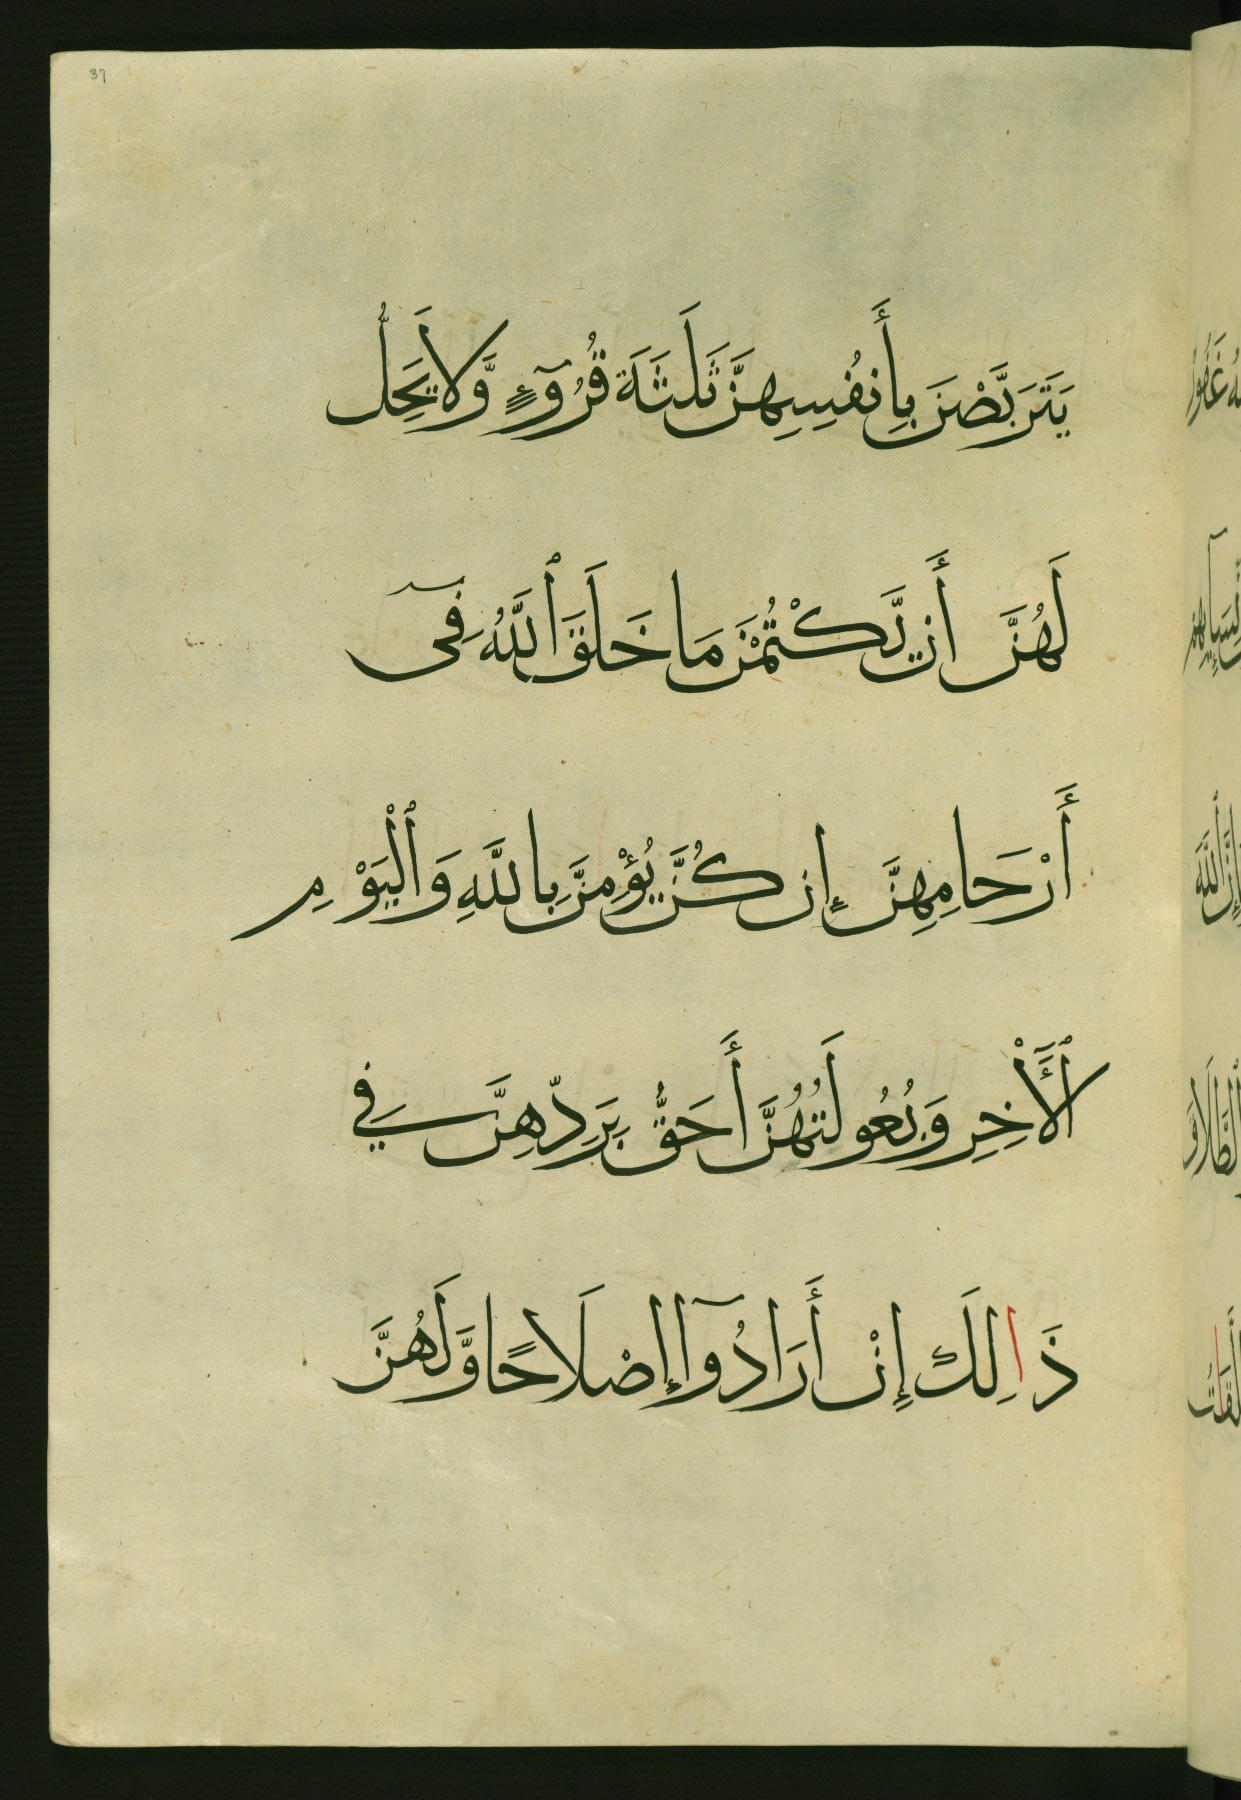 37
يَتَرَبَّصْنَ بِأَنفُسِهِنَّ ثَلَثَةَ قُرُوٓءٍ وَّلَا يَحِلُّ
لَهُنَّ أَن يَّكْتُمْنَ مَا خَلَقَ ٱللَّهُ فِىٓ
أَرْحَامِهِنَّ إِن كُنَّ يُؤْمِنَّ بِاللَّهِ وَٱلْيَوْمِ
ٱلْأَٓخِرِ وَبُعُولَتُهُنَّ أَحَقُّ بِرَدِّهِنَّ فِي
ذَالِكَ إِنْ أَرَادُوٓا إِصْلَاحًا وَّلَهُنَّ